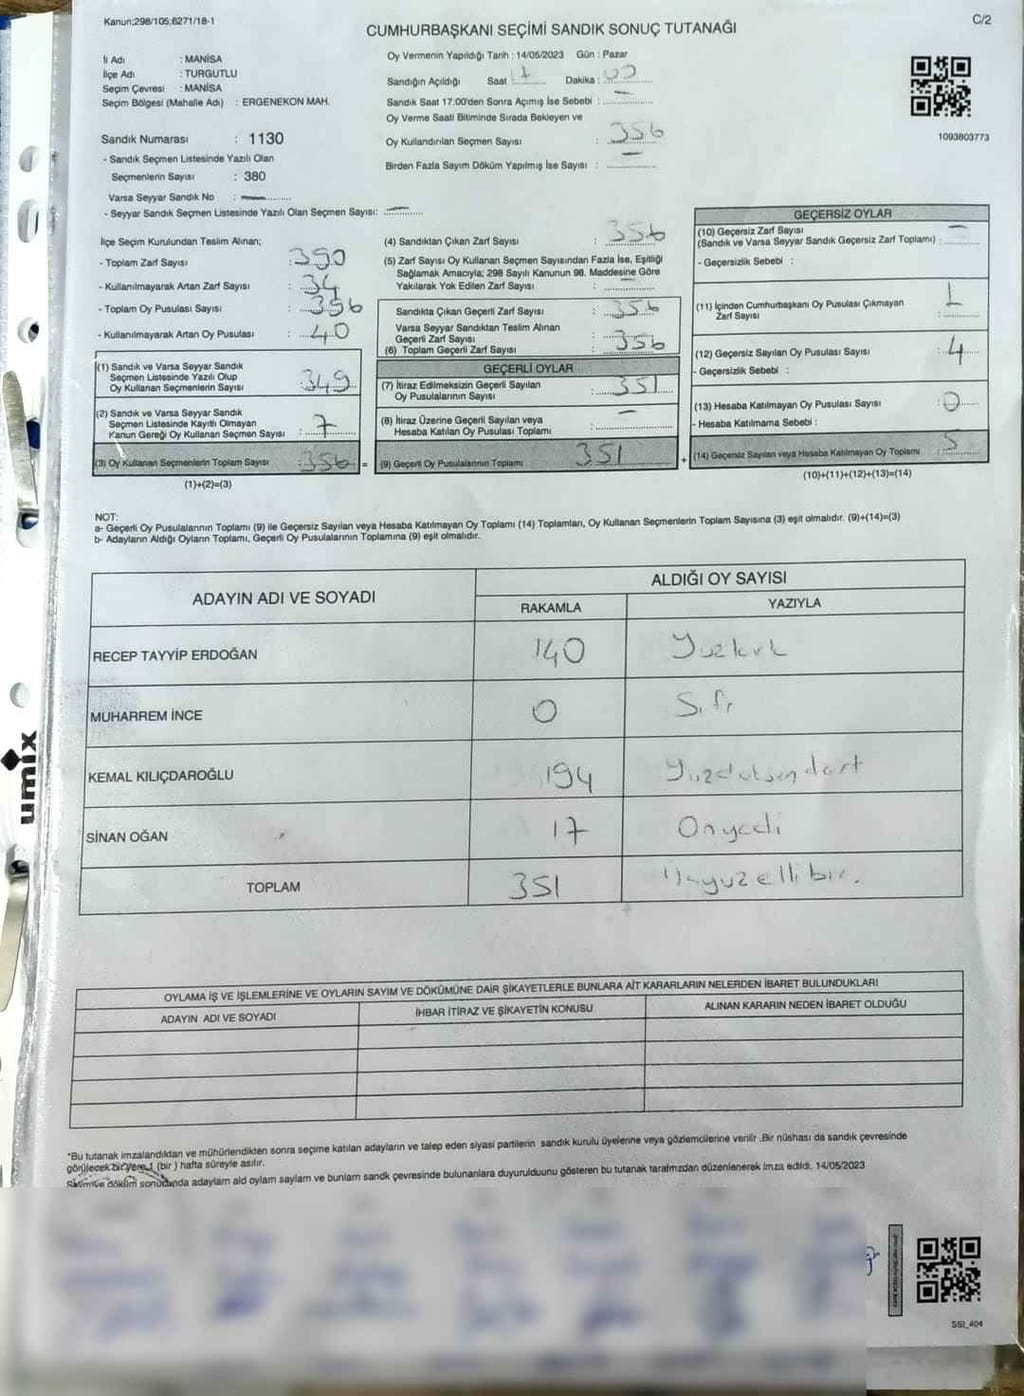 Kanun:298/105;6271/18-1
C/2
CUMHURBAŞKANI SEÇİMİ SANDIK SONUÇ TUTANAĞI
İl Adı : MANİSA
İlçe Adı : TURGUTLU
Seçim Çevresi : MANİSA
Seçim Bölgesi (Mahalle Adı) : ERGENEKON MAH.
Sandık Numarası : 1130
- Sandık Seçmen Listesinde Yazılı Olan
Seçmenlerin Sayısı : 380
Varsa Seyyar Sandık No :
- Seyyar Sandık Seçmen Listesinde Yazılı Olan Seçmen Sayısı:
Oy Vermenin Yapıldığı Tarih : 14/05/2023 Gün : Pazar
Sandığın Açıldığı Saat Dakika :
Sandık Saat 17.00'den Sonra Açımış İse Sebebi :
Oy Verme Saati Bitiminde Sırada Bekleyen ve
Oy Kullandırılan Seçmen Sayısı : 356
Birden Fazla Sayım Döküm Yapılmış İse Sayısı :
1093803773
İlçe Seçim Kurulundan Teslim Alınan;
- Toplam Zarf Sayısı : 390
- Kullanılmayarak Artan Zarf Sayısı : 34
- Toplam Oy Pusulası Sayısı : 396
- Kullanılmayarak Artan Oy Pusulası : 40
(1) Sandık ve Varsa Seyyar Sandık
Seçmen Listesinde Yazılı Olup
Oy Kullanan Seçmenlerin Sayısı : 349
(2) Sandık ve Varsa Seyyar Sandık
Seçmen Listesinde Kayıtlı Olmayan
Kanun Gereği Oy Kullanan Seçmen Sayısı : 7
(3) Oy Kullanan Seçmenlerin Toplam Sayısı : 356 =
(1)+(2)=(3)
(4) Sandıktan Çıkan Zarf Sayısı : 356
(5) Zarf Sayısı Oy Kullanan Seçmen Sayısından Fazla İse, Eşitliği
Sağlamak Amacıyla; 298 Sayılı Kanunun 98. Maddesine Göre
Yakılarak Yok Edilen Zarf Sayısı :
Sandıkta Çıkan Geçerli Zarf Sayısı : 356
Varsa Seyyar Sandıktan Teslim Alınan
Geçerli Zarf Sayısı :
(6) Toplam Geçerli Zarf Sayısı : 356
GEÇERLİ OYLAR
(7) İtiraz Edilmeksizin Geçerli Sayılan
Oy Pusulalarının Sayısı : 351
(8) İtiraz Üzerine Geçerli Sayılan veya
Hesaba Katılan Oy Pusulası Toplamı :
(9) Geçerli Oy Pusulalarının Toplamı 351 +
GEÇERSİZ OYLAR
(10) Geçersiz Zarf Sayısı
(Sandık ve Varsa Seyyar Sandık Geçersiz Zarf Toplamı) :
- Geçersizlik Sebebi :
(11) İçinden Cumhurbaşkanı Oy Pusulası Çıkmayan
Zarf Sayısı : 1
(12) Geçersiz Sayılan Oy Pusulası Sayısı : 4
- Geçersizlik Sebebi :
(13) Hesaba Katılmayan Oy Pusulası Sayısı : 0
- Hesaba Katılmama Sebebi :
(14) Geçersiz Sayılan veya Hesaba Katılmayan Oy Toplamı : 5
(10)+(11)+(12)+(13)=(14)
NOT:
a- Geçerli Oy Pusulalarının Toplamı (9) ile Geçersiz Sayılan veya Hesaba Katılmayan Oy Toplamı (14) Toplamları, Oy Kullanan Seçmenlerin Toplam Sayısına (3) eşit olmalıdır. (9)+(14)=(3)
b- Adayların Aldığı Oyların Toplamı, Geçerli Oy Pusulalarının Toplamına (9) eşit olmalıdır.
ADAYIN ADI VE SOYADI
ALDIĞI OY SAYISI
RAKAMLA YAZIYLA
RECEP TAYYİP ERDOĞAN 140 Yüzkırk
MUHARREM İNCE 0 Sıfır
KEMAL KILIÇDAROĞLU 194 Yüzdoksandört
SİNAN OĞAN 17 Onyedi
TOPLAM 351 Üçyüzellibir.
OYLAMA İŞ VE İŞLEMLERİNE VE OYLARIN SAYIM VE DÖKÜMÜNE DAİR ŞİKAYETLERLE BUNLARA AİT KARARLARIN NELERDEN İBARET BULUNDUKLARI
ADAYIN ADI VE SOYADI İHBAR İTİRAZ VE ŞİKAYETİN KONUSU ALINAN KARARIN NEDEN İBARET OLDUĞU
*Bu tutanak imzalandıktan ve mühürlendikten sonra seçime katılan adayların ve talep eden siyasi partilerin sandık kurulu üyelerine veya gözlemcilerine verilir .Bir nüshası da sandık çevresinde
görülecek bir yere 1 (bir ) hafta süreyle asılır.
Sayım ve döküm sonucunda adayların ald oyların sayları ve bunları sandk çevresinde bulunanlara duyurulduunu gösteren bu tutanak tarafmzdan düzenlenerek imza edildi. 14/05/2023
SSI_404
umix